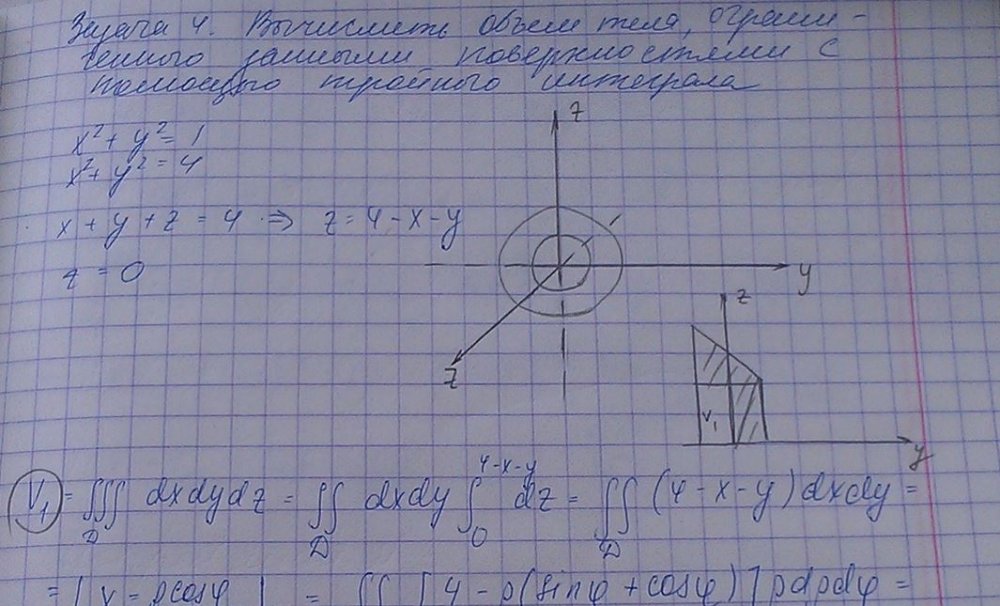 Задача 4. Вычислить объем тела, ограни-
ченного данными поверхностями с
помощью тройного интеграла
x² + y² = 1
x² + y² = 4
x + y + z = 4 ⇒ z = 4 - x - y
z = 0
z
y
z
z
V₁
y
V₁ = ∭_D dxdydz = ∬_D dxdy ∫₀^{4-x-y} dz = ∬_D (4 - x - y) dxdy =
= | y = ρcosφ | = ∬ [4 - ρ(sinφ + cosφ)] ρdρdφ =